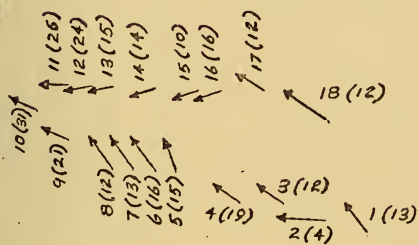 10(31)
11(26)
12(24)
13(15)
14(14)
15(10)
16(16)
17(12)
18(12)
9(21)
8(12)
7(13)
6(16)
5(15)
4(19)
3(12)
2(4)
1(13)